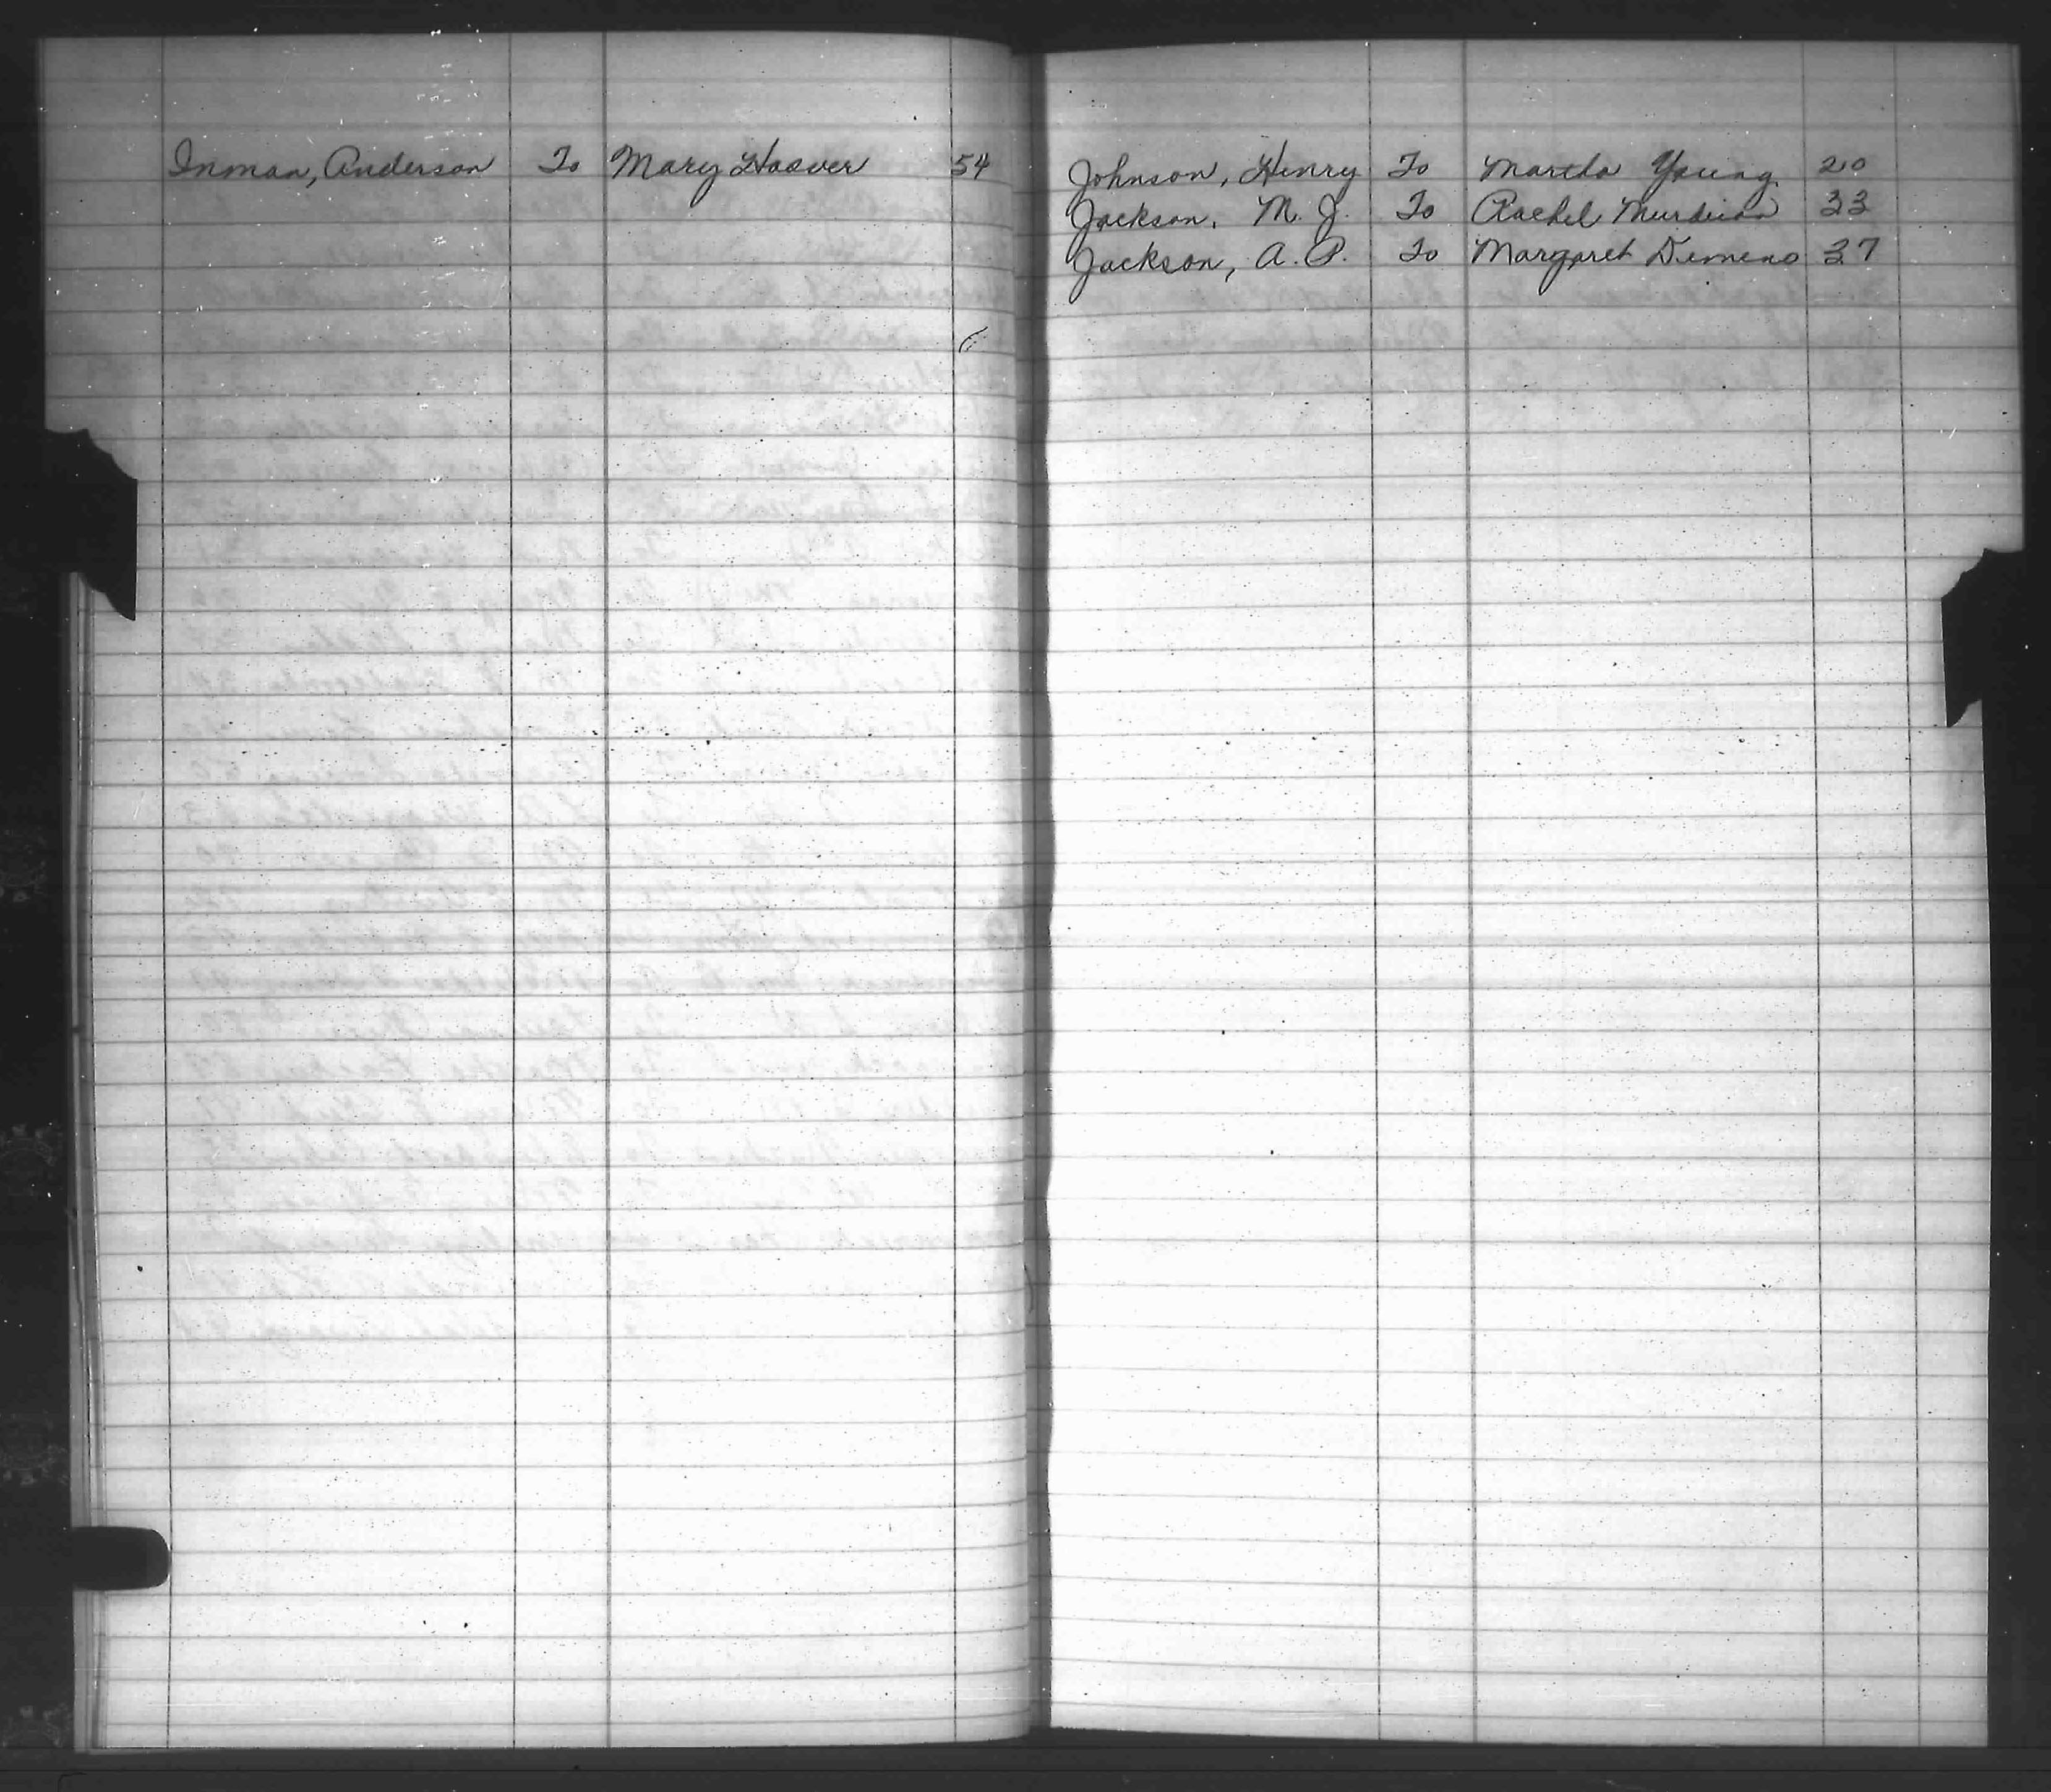 Inman, Anderson To Mary Hoover 54
Johnson, Henry To Martha Young 20
Jackson, M. J. To Rachel 33
Jackson, A. P. To Margaret 37